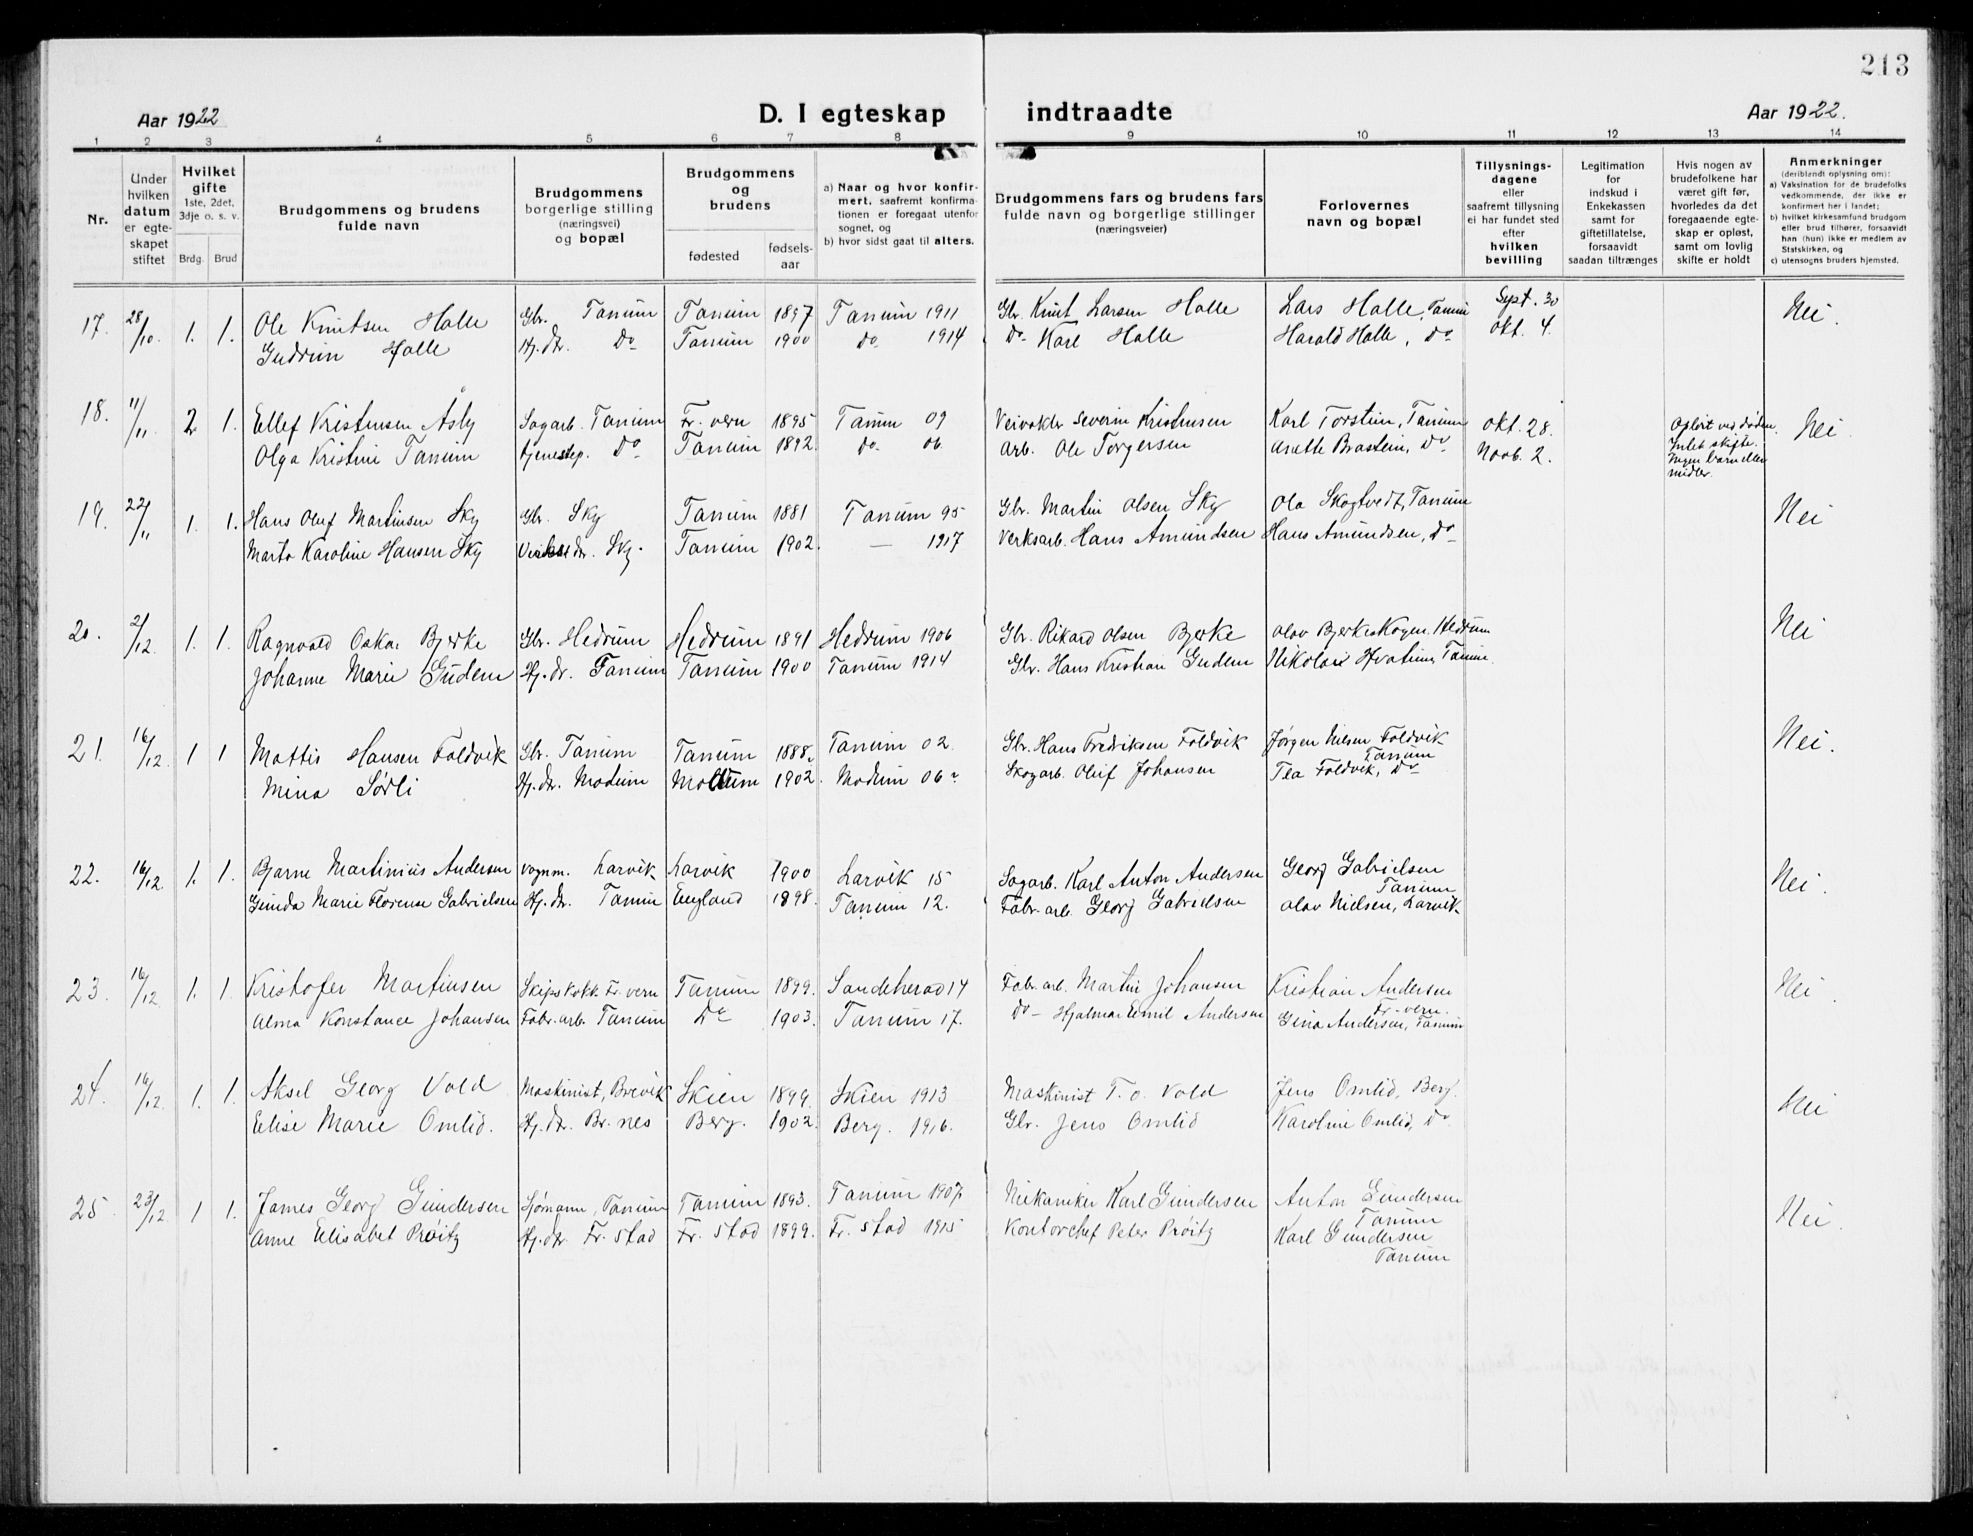 213
Aar 1922 D. I egteskap indtraadte Aar 1922.
1 2 3 4 5 6 7 8 9 10 11 12 13 14
Nr.
Under hvilken datum er egteskapet stiftet
Hvilket gifte 1ste, 2det, 3dje o. s. v.
Brdg. Brud
Brudgommens og brudens fulde navn
Brudgommens borgerlige stilling (næringsvei) og bopæl
Brudgommens og brudens
fødested fødsels-aar
a) Naar og hvor konfirmert, saafremt konfirmationen er foregaat utenfor sognet, og
b) hvor sidst gaat til alters.
Brudgommens fars og brudens fars fulde navn og borgerlige stillinger (næringsveier)
Forlovernes navn og bopæl
Tillysningsdagene eller saafremt tillysning ei har fundet sted efter hvilken bevilling
Legitimation for indskud i Enkekassen samt for giftetillatelse, forsaavidt saadan tiltrænges
Hvis nogen av brudefolkene har været gift før, hvorledes da det foregaaende egteskap er opløst, samt om lovlig skifte er holdt
Anmerkninger
(deriblandt oplysning om):
a) Vaksination for de brudefolks vedkommende, der ikke er konfirmert her i landet;
b) hvilket kirkesamfund brudgom eller brud tilhører, forsaavidt han (hun) ikke er medlem av Statskirken, og
c) utensogns bruders hjemsted.
17. 28/10. 1. 1. Ole Knutsen Halle Gbr. Tanum Tanum 1897 Tanum 1911 Gbr. Knut Larsen Halle Lars Halle, Tanum Sept. 30 Nei.
Gudrun Halle Hj.dtr. Do Tanum 1900 do. 1914 Do- Karl Halle Harald Halle, Do Okt. 4.
18. 11/11 2. 1. Ellef Kristensen Åsly Sagarb. Tanum Fr.vern 1895 Tanum 09 Veivokter Severin Kristensen Karl Torstein, Tanum Okt. 28. Opløst ved døden. Nei.
Olga Kristine Tanum tjenestep. Do Tanum 1892. do. 06. Arb. Ole Torgersen Anette Brastein, Do Novb. 2. Intet skifte.
Ingen barn eller
midler.
19. 22/11 1. 1. Hans Oluf Martinsen Sky Gbr. Sky Tanum 1881 Tanum 95 Gbr. Martin Olsen Sky Ola Skogtvedt, Tanum Nei
Marta Karoline Hansen Sky Sky. Tanum 1902. — 1917 Verksarb. Hans Amundsen Hans Amundsen, Do
20. 2/12. 1. 1. Ragnvald Oskar Bjerke Gbr. Hedrum Hedrum 1891 Hedrum 1906 Gbr. Rikard Olsen Bjerke Olav Bjerkeskogen, Hedrum Nei
Johanne Marie Gudem Hj.dr. Tanum Tanum 1900 Tanum 1914 Gbr. Hans Kristian Gudem Nikolai Hvatum, Tanum.
21. 16/12. 1 1 Mattis Hansen Foldvik Gbr. Tanum Tanum 1888. Tanum 02. Gbr. Hans Fredriksen Foldvik Jørgen Nilsen Foldvik Nei.
Tanum
Mina Sørli Hj.dr. Modum Modum 1902. Modum 06. Skogarb. Oluf Johansen Tea Foldvik, Do
22. 16/12. 1. 1. Bjarne Martinius Andersen Vognm. Larvik Larvik 1900 Larvik 15 Sagarb. Karl Anton Andersen Georg Gabrielsen Nei.
Tanum
Gunda Marie Florense Gabrielsen Hj.dr. Tanum England 1898. Tanum 12. Fabr. arb. Georg Gabrielsen Olav Nielsen, Larvik
23. 16/12 1. 1 Kristofer Martinsen Skipskokk Fr.vern Tanum 1899. Sandeherad 14 Fabr. arb. Martin Johansen Kristian Andersen Nei.
Fr.vern.
Alma Konstance Johansen Fabr.arb. Tanum Do 1903. Tanum 17. Do- Hjalmar Emil Andersen Gina Andersen, Tanum
24. 16/12. 1. 1. Aksel Georg Vold Maskinist, Brevik Skien 1899. Skien 1913 Maskinist T. O. Vold Jens Omlid, Berg. Nei
Elise Marie Omlid. Hj.dr. Br.nes Berg. 1902. Berg. 1916. Gbr. Jens Omlid Karoline Omlid, Do
25. 23/12. 1 1. James Georg Gundersen Sjømann, Tanum Tanum 1893. Tanum 1907 Mekaniker Karl Gundersen Anton Gundersen Nei.
Tanum
Anne Elisabet Prøitz Hj.dtr. Fr.stad Fr.stad 1899. Fr.stad 1915 Kontorchef Peter Prøitz Karl Gundersen
Tanum